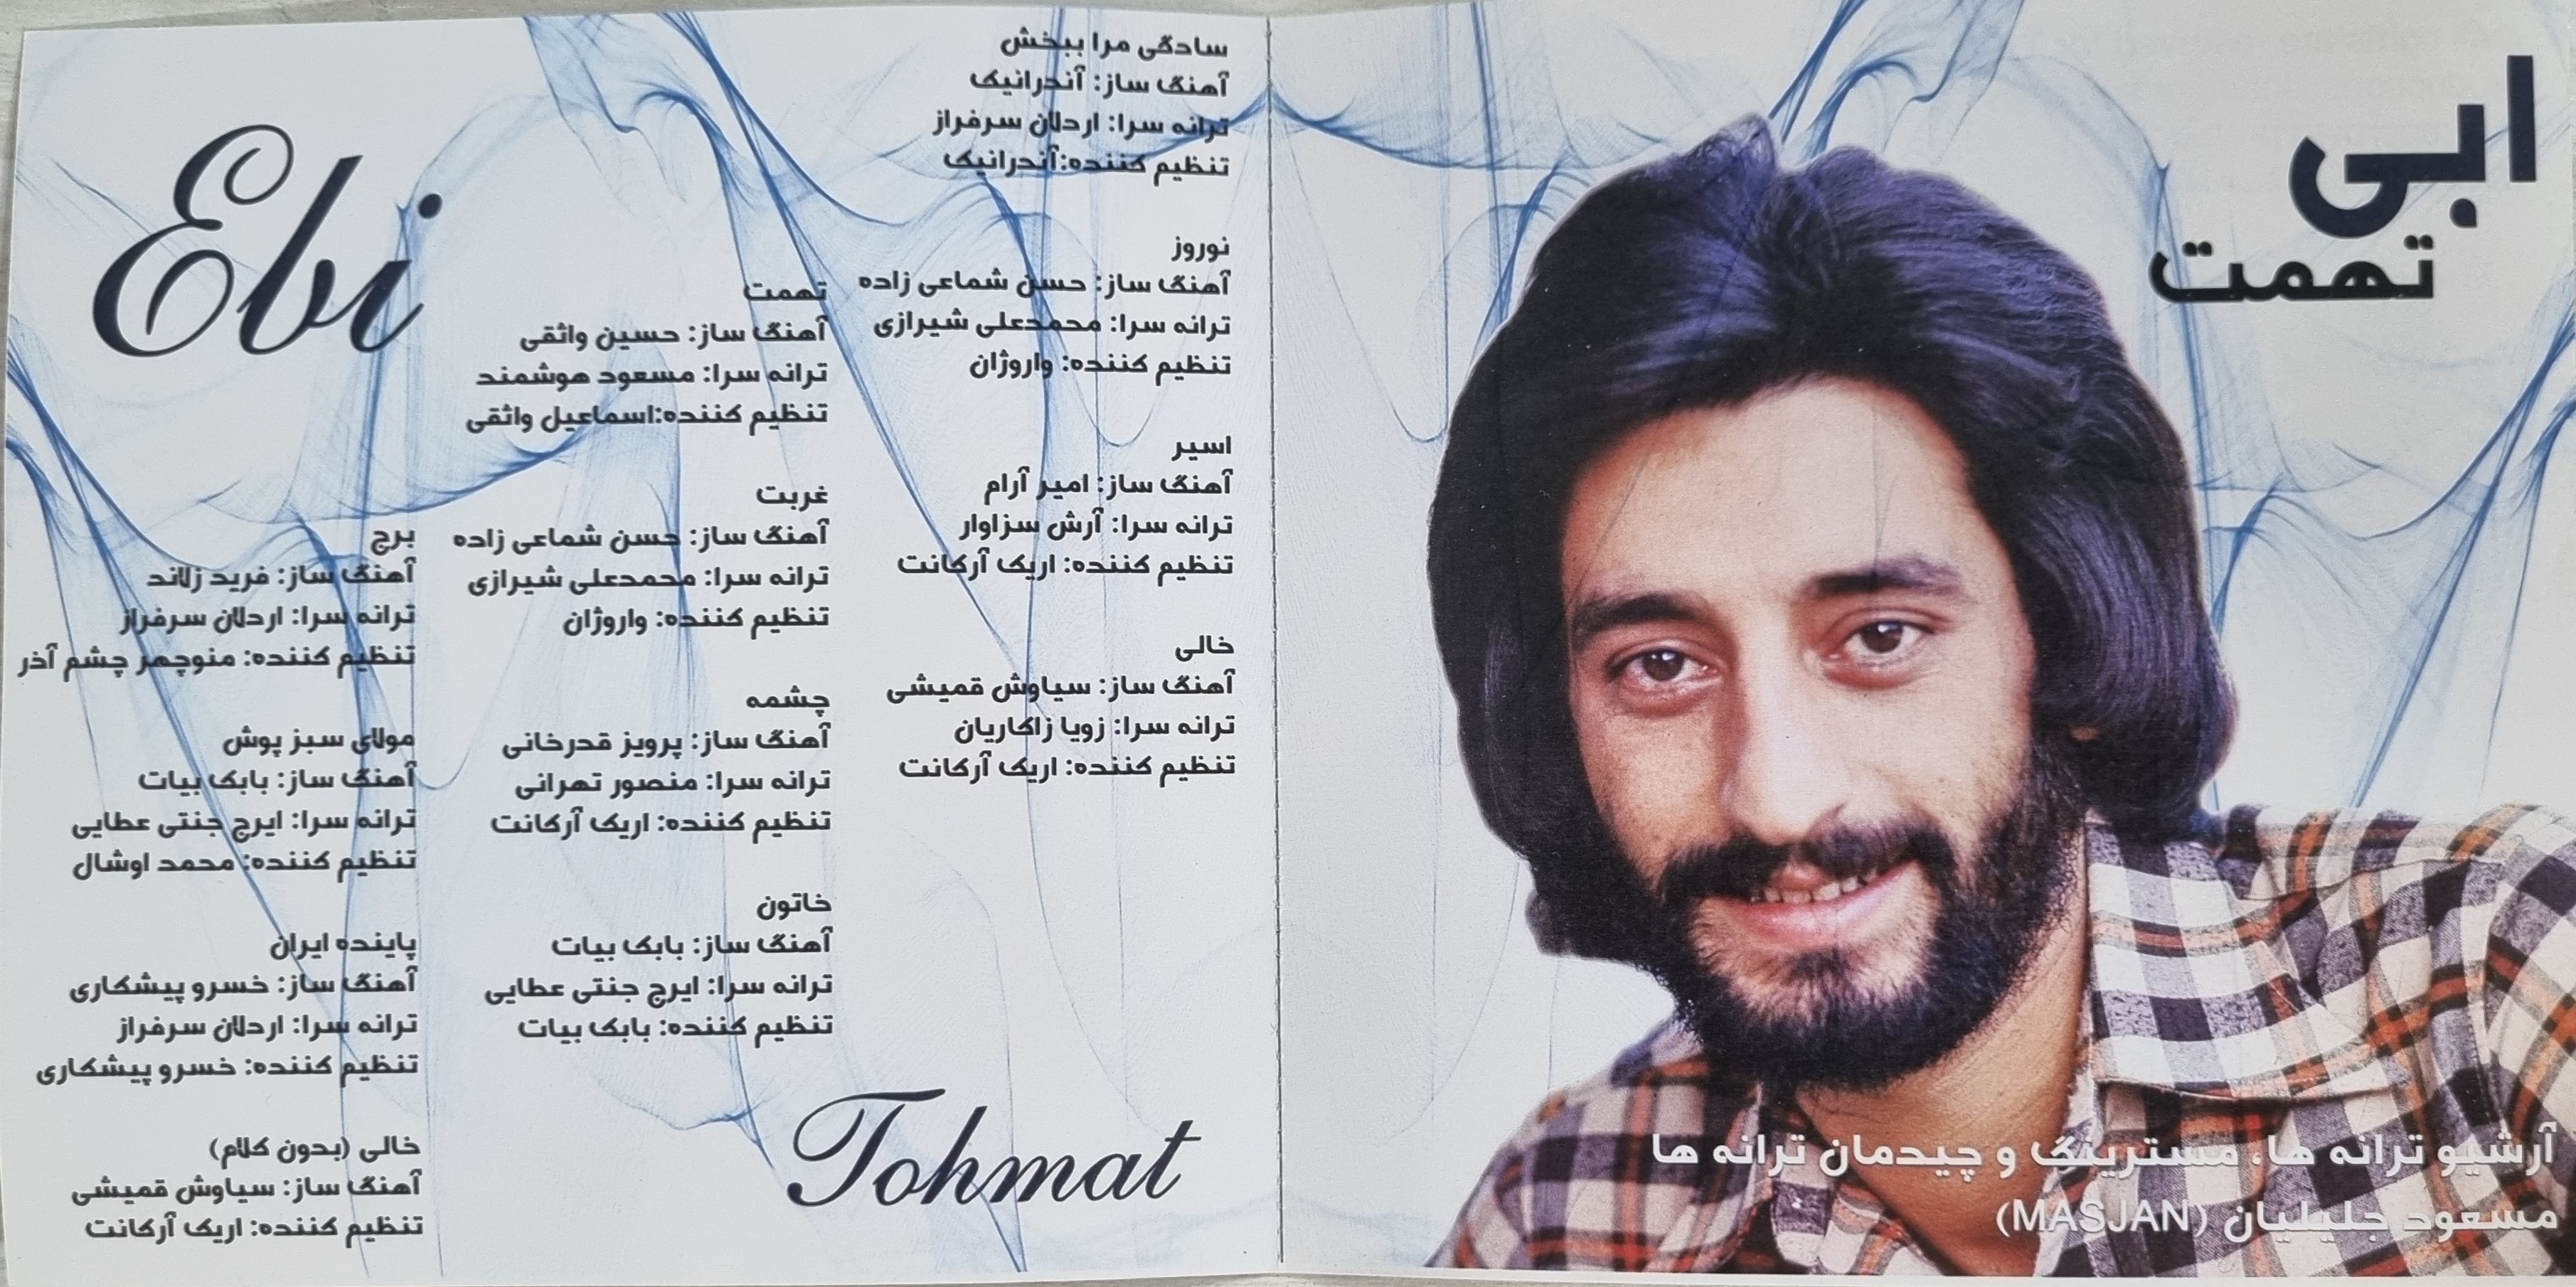 ابی
تهمت
آرشیو ترانه ها، مسترینگ و چیدمان ترانه ها
مسعود جلیلیان (MASJAN)
سادگی مرا ببخش
آهنگ ساز: آندرانیک
ترانه سرا: اردلان سرفراز
تنظیم کننده:آندرانیک
نوروز
آهنگ ساز: حسن شماعی زاده
ترانه سرا: محمدعلی شیرازی
تنظیم کننده: واروژان
اسیر
آهنگ ساز: امیر آرام
ترانه سرا: آرش سزاوار
تنظیم کننده: اریک آرکانت
خالی
آهنگ ساز: سیاوش قمیشی
ترانه سرا: زویا زاکاریان
تنظیم کننده: اریک آرکانت
تهمت
آهنگ ساز: حسین واثقی
ترانه سرا: مسعود هوشمند
تنظیم کننده:اسماعیل واثقی
غربت
آهنگ ساز: حسن شماعی زاده
ترانه سرا: محمدعلی شیرازی
تنظیم کننده: واروژان
چشمه
آهنگ ساز: پرویز قدرخانی
ترانه سرا: منصور تهرانی
تنظیم کننده: اریک آرکانت
خاتون
آهنگ ساز: بابک بیات
ترانه سرا: ایرج جنتی عطایی
تنظیم کننده: بابک بیات
Ebi
برج
آهنگ ساز: فرید زلاند
ترانه سرا: اردلان سرفراز
تنظیم کننده: منوچهر چشم آذر
مولای سبز پوش
آهنگ ساز: بابک بیات
ترانه سرا: ایرج جنتی عطایی
تنظیم کننده: محمد اوشال
پاینده ایران
آهنگ ساز: خسرو پیشکاری
ترانه سرا: اردلان سرفراز
تنظیم کننده: خسرو پیشکاری
خالی (بدون کلام)
آهنگ ساز: سیاوش قمیشی
تنظیم کننده: اریک آرکانت
Tohmat